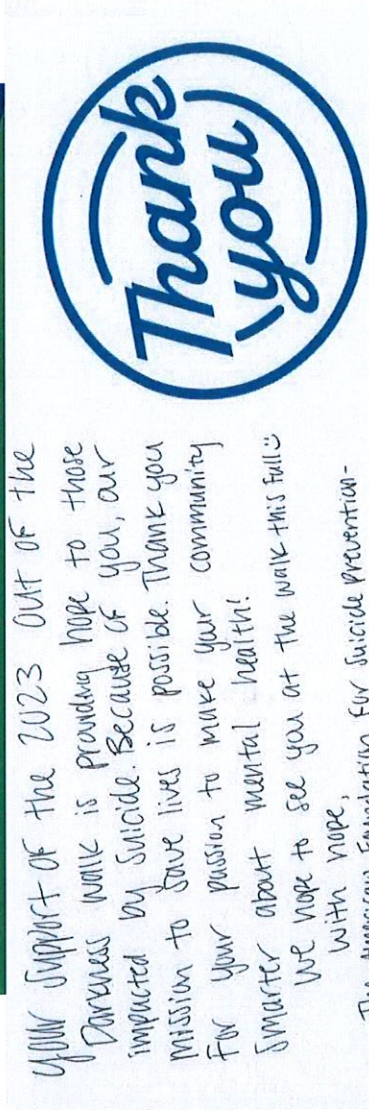 Thank
you
your support of the 2023 out of the
Darkness walk is providing hope to those
impacted by suicide. Because of you, our
mission to save lives is possible. Thank you
for your passion to make your community
smarter about mental health!
we hope to see you at the walk this fall
with hope,
The American Foundation for Suicide Prevention-